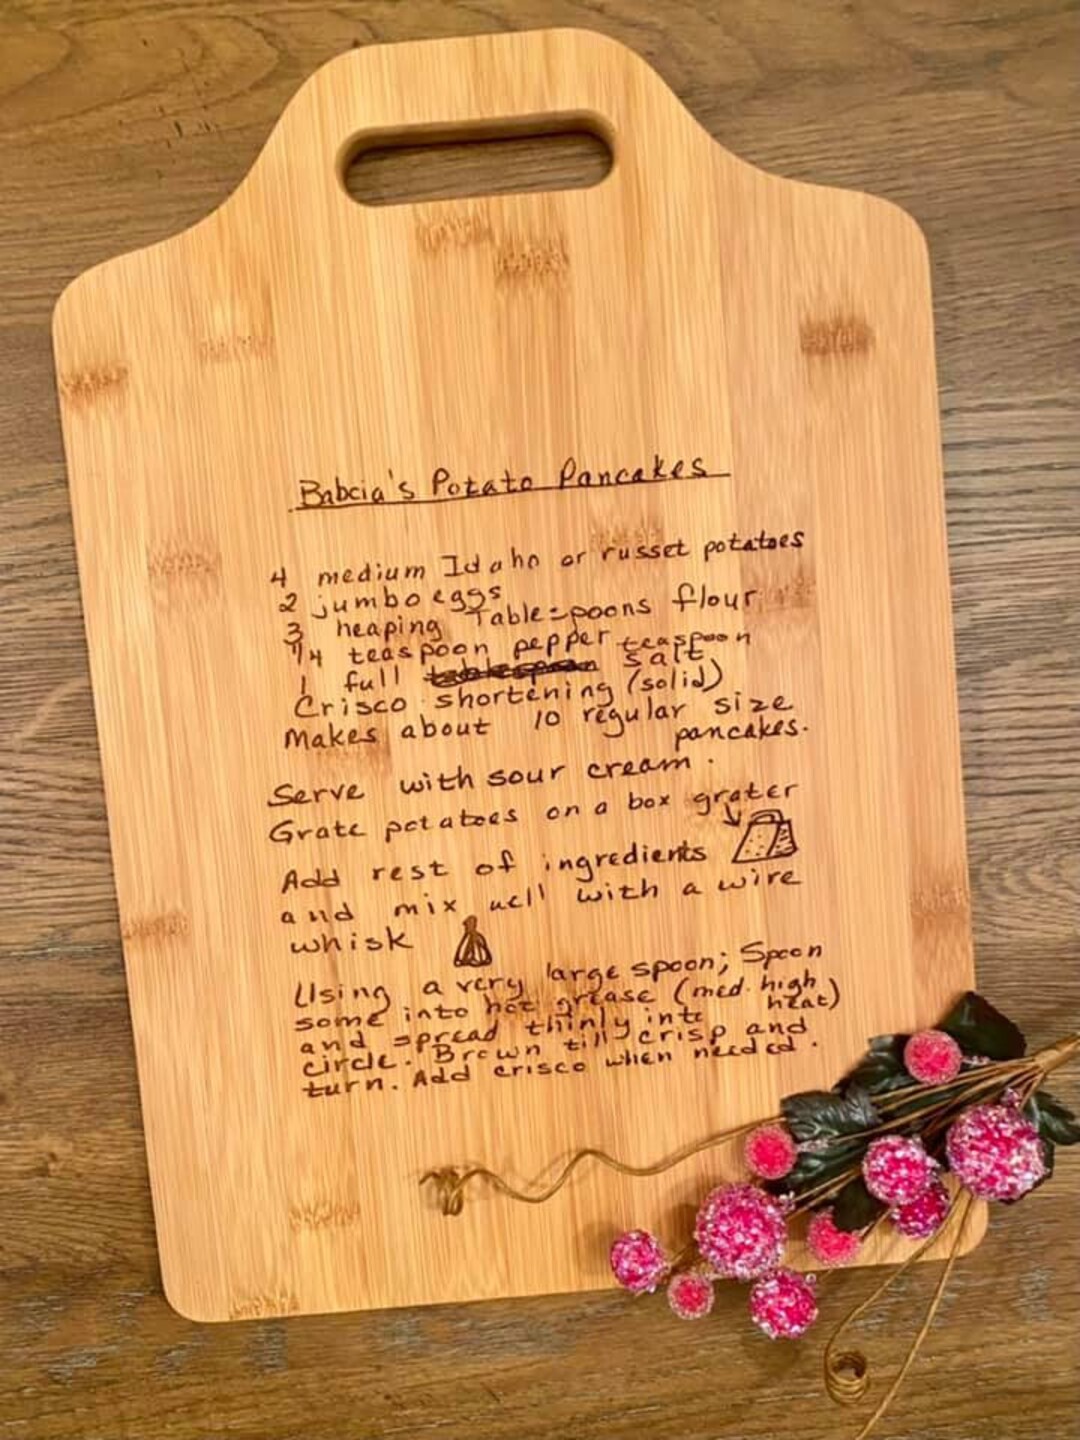 Babcia's Potato Pancakes
4 medium Idaho or russet potatoes
2 jumbo eggs
3 heaping Tablespoons flour
1/4 teaspoon pepper
1 full teaspoon salt
Crisco shortening (solid)
Makes about 10 regular size
pancakes.
Serve with sour cream.
Grate potatoes on a box grater
Add rest of ingredients
and mix well with a wire
whisk
Using a very large spoon; Spoon
some into hot grease (med. high
heat)
and spread thinly into
circle. Brown till crisp and
turn. Add crisco when needed.